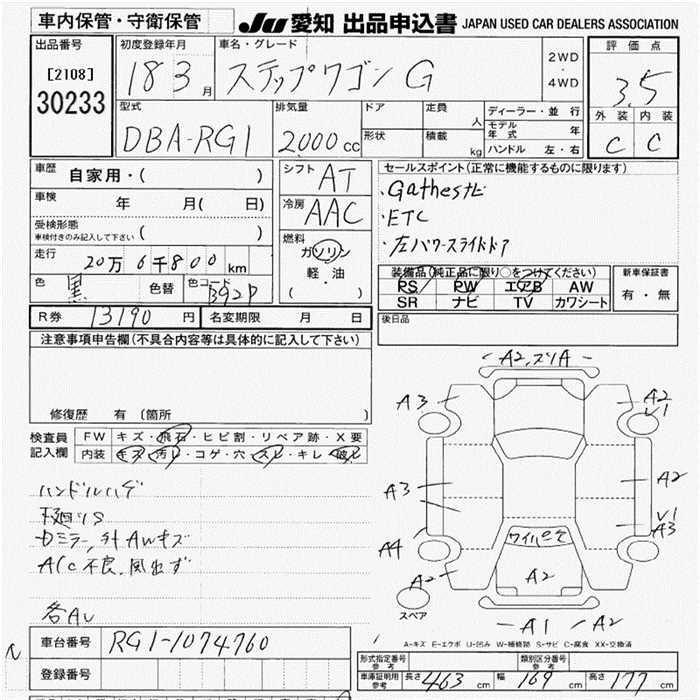 車内保管・守衛保管 JU 愛知 出品申込書 JAPAN USED CAR DEALERS ASSOCIATION
出品番号 初度登録年月 車名・グレード 2WD ・ 4WD 評価点
[2108] 18 3月 ステップワゴン G 3.5
30233 型式 排気量 ドア 定員 人 ディーラー・並行 外装 内装
モデル年式 年
DBA-RG1 2000cc 形状 積載 kg ハンドル 左・右 C C
車歴 自家用・( ) シフト AT セールスポイント(正常に機能するものに限ります)
車検 年 月( 日) 冷房 AAC ・Gathersナビ
受検形態 ・ETC
車検付きのみ記入して下さい 燃料 ガソリン ・左パワースライドドア
走行 20万6千800km 軽・油 装備品(純正品に限り○をつけてください) 新車保証書
色 黒 色替 色コード B92P ( ) PS PW エアB AW 有・無
SR ナビ TV カワシート
R券 13190円 名変期限 月 日 後日品
注意事項申告欄(不具合内容等は具体的に記入して下さい)
修復歴 有(箇所 )
検査員 FW キズ・飛石・ヒビ割・リペア跡・X要
記入欄 内装 キズ・汚レ・コゲ・穴・スレ・キレ・破レ
ハンドルハゲ
下廻りS
Dミラー、外AWキズ
A/C不良、風出ず
各AU
A2,スリA
A3 A2
U1
A3 A2
U1
A3
A4
A2 A2
スペア A1 A2
A-キズ E-エクボ U-凹み W-補修跡 S-サビ C-腐食 XX-交換済
車台番号 RG1-1074760
登録番号
形式指定番号 参考 類別区分番号 参考
車庫証明用 参考 長さ 463cm 幅 169cm 高さ 177cm